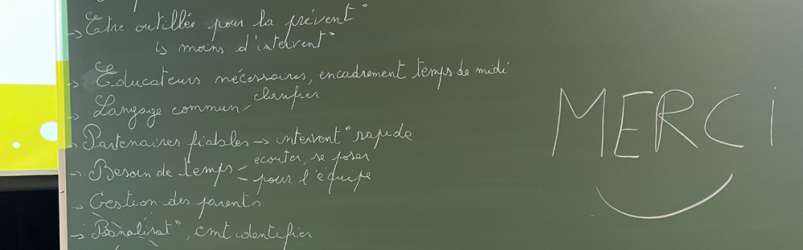 → Être outillés pour la prévent°
↳ moins d'intervent°
→ Educateurs nécessaires, encadrement temps de midi
→ Langage commun, clarifier
→ Partenaires fiables → intervent° rapide
→ Besoin de temps - écouter, se poser
- pour l'équipe
→ Gestion des parents
→ Banalisat°, cmt identifier
MERCI